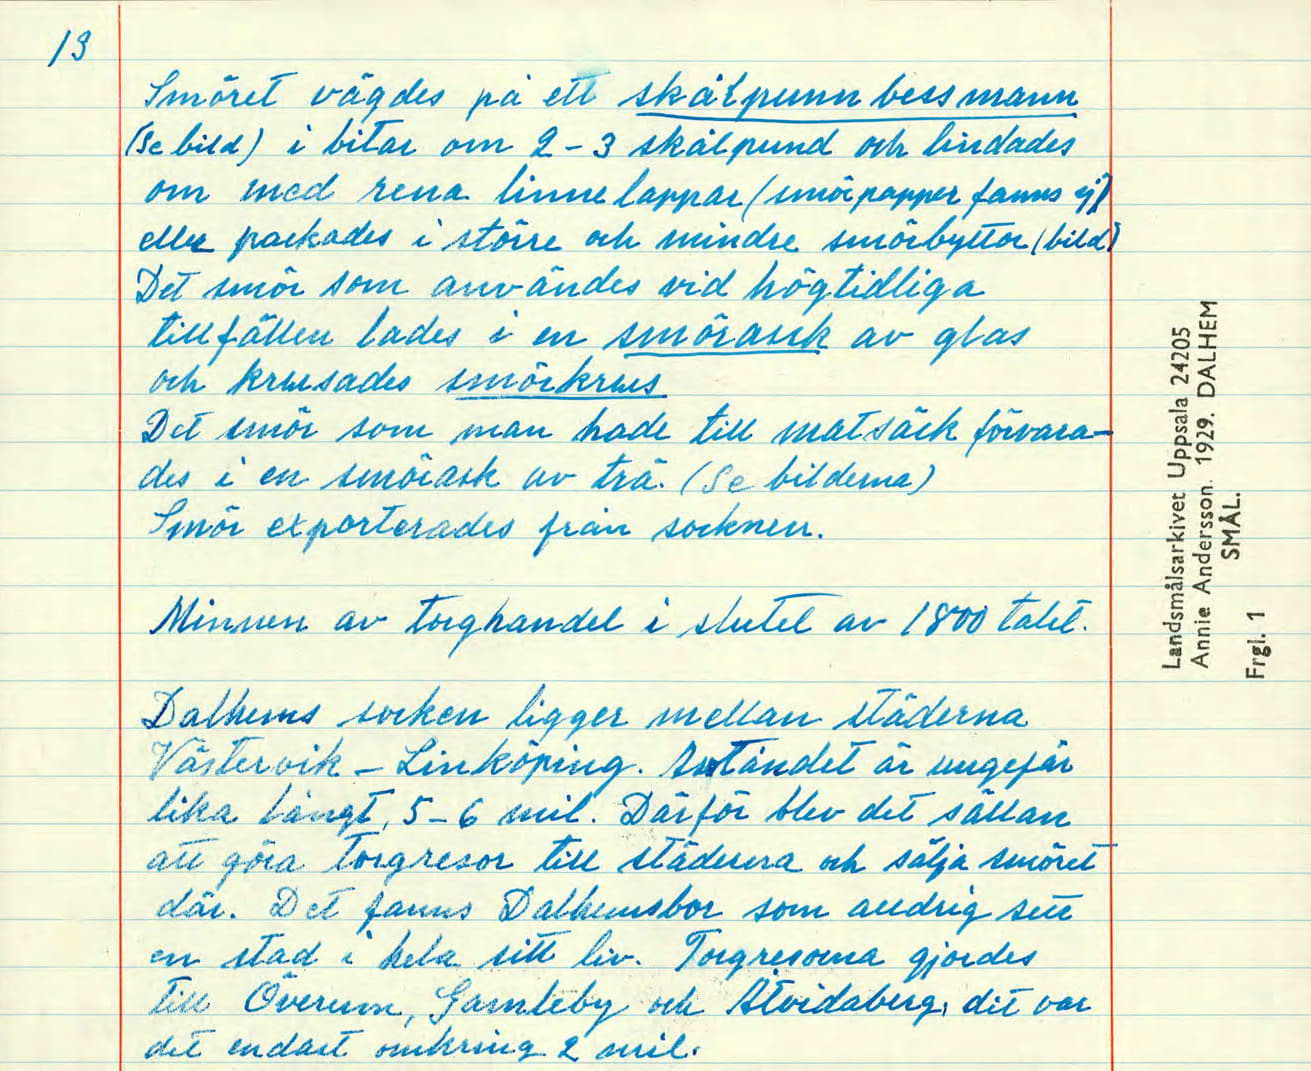 13
Smöret vägdes på ett skålpunn bessmann
(Se bild) i bitar om 2-3 skålpund och lindades
om med rena linnelappar (smörpapper fanns ej)
eller packades i större och mindre smörbyttor (bild)
Det smör som användes vid högtidliga
tillfällen lades i en smörask av glas
och krusades smörkrus
Det smör som man hade till matsäck förvara-
des i en smörask av trä. (Se bilderna)
Smör exporterades från socknen.
Minnen av torghandel i slutet av 1800 talet.
Dalhems socken ligger mellan städerna
Västervik - Linköping. Avståndet är ungefär
lika långt, 5-6 mil. Därför blev det sällan
att göra torgresor till städerna och sälja smöret
där. Det fanns Dalhemsbor som aldrig sett
en stad i hela sitt liv. Torgresorna gjordes
till Överum, Gamleby och Åtvidaberg, dit var
det endast omkring 2 mil.
Landsmålsarkivet Uppsala 24205
Annie Andersson. 1929. DALHEM
SMÅL.
Frgl. 1